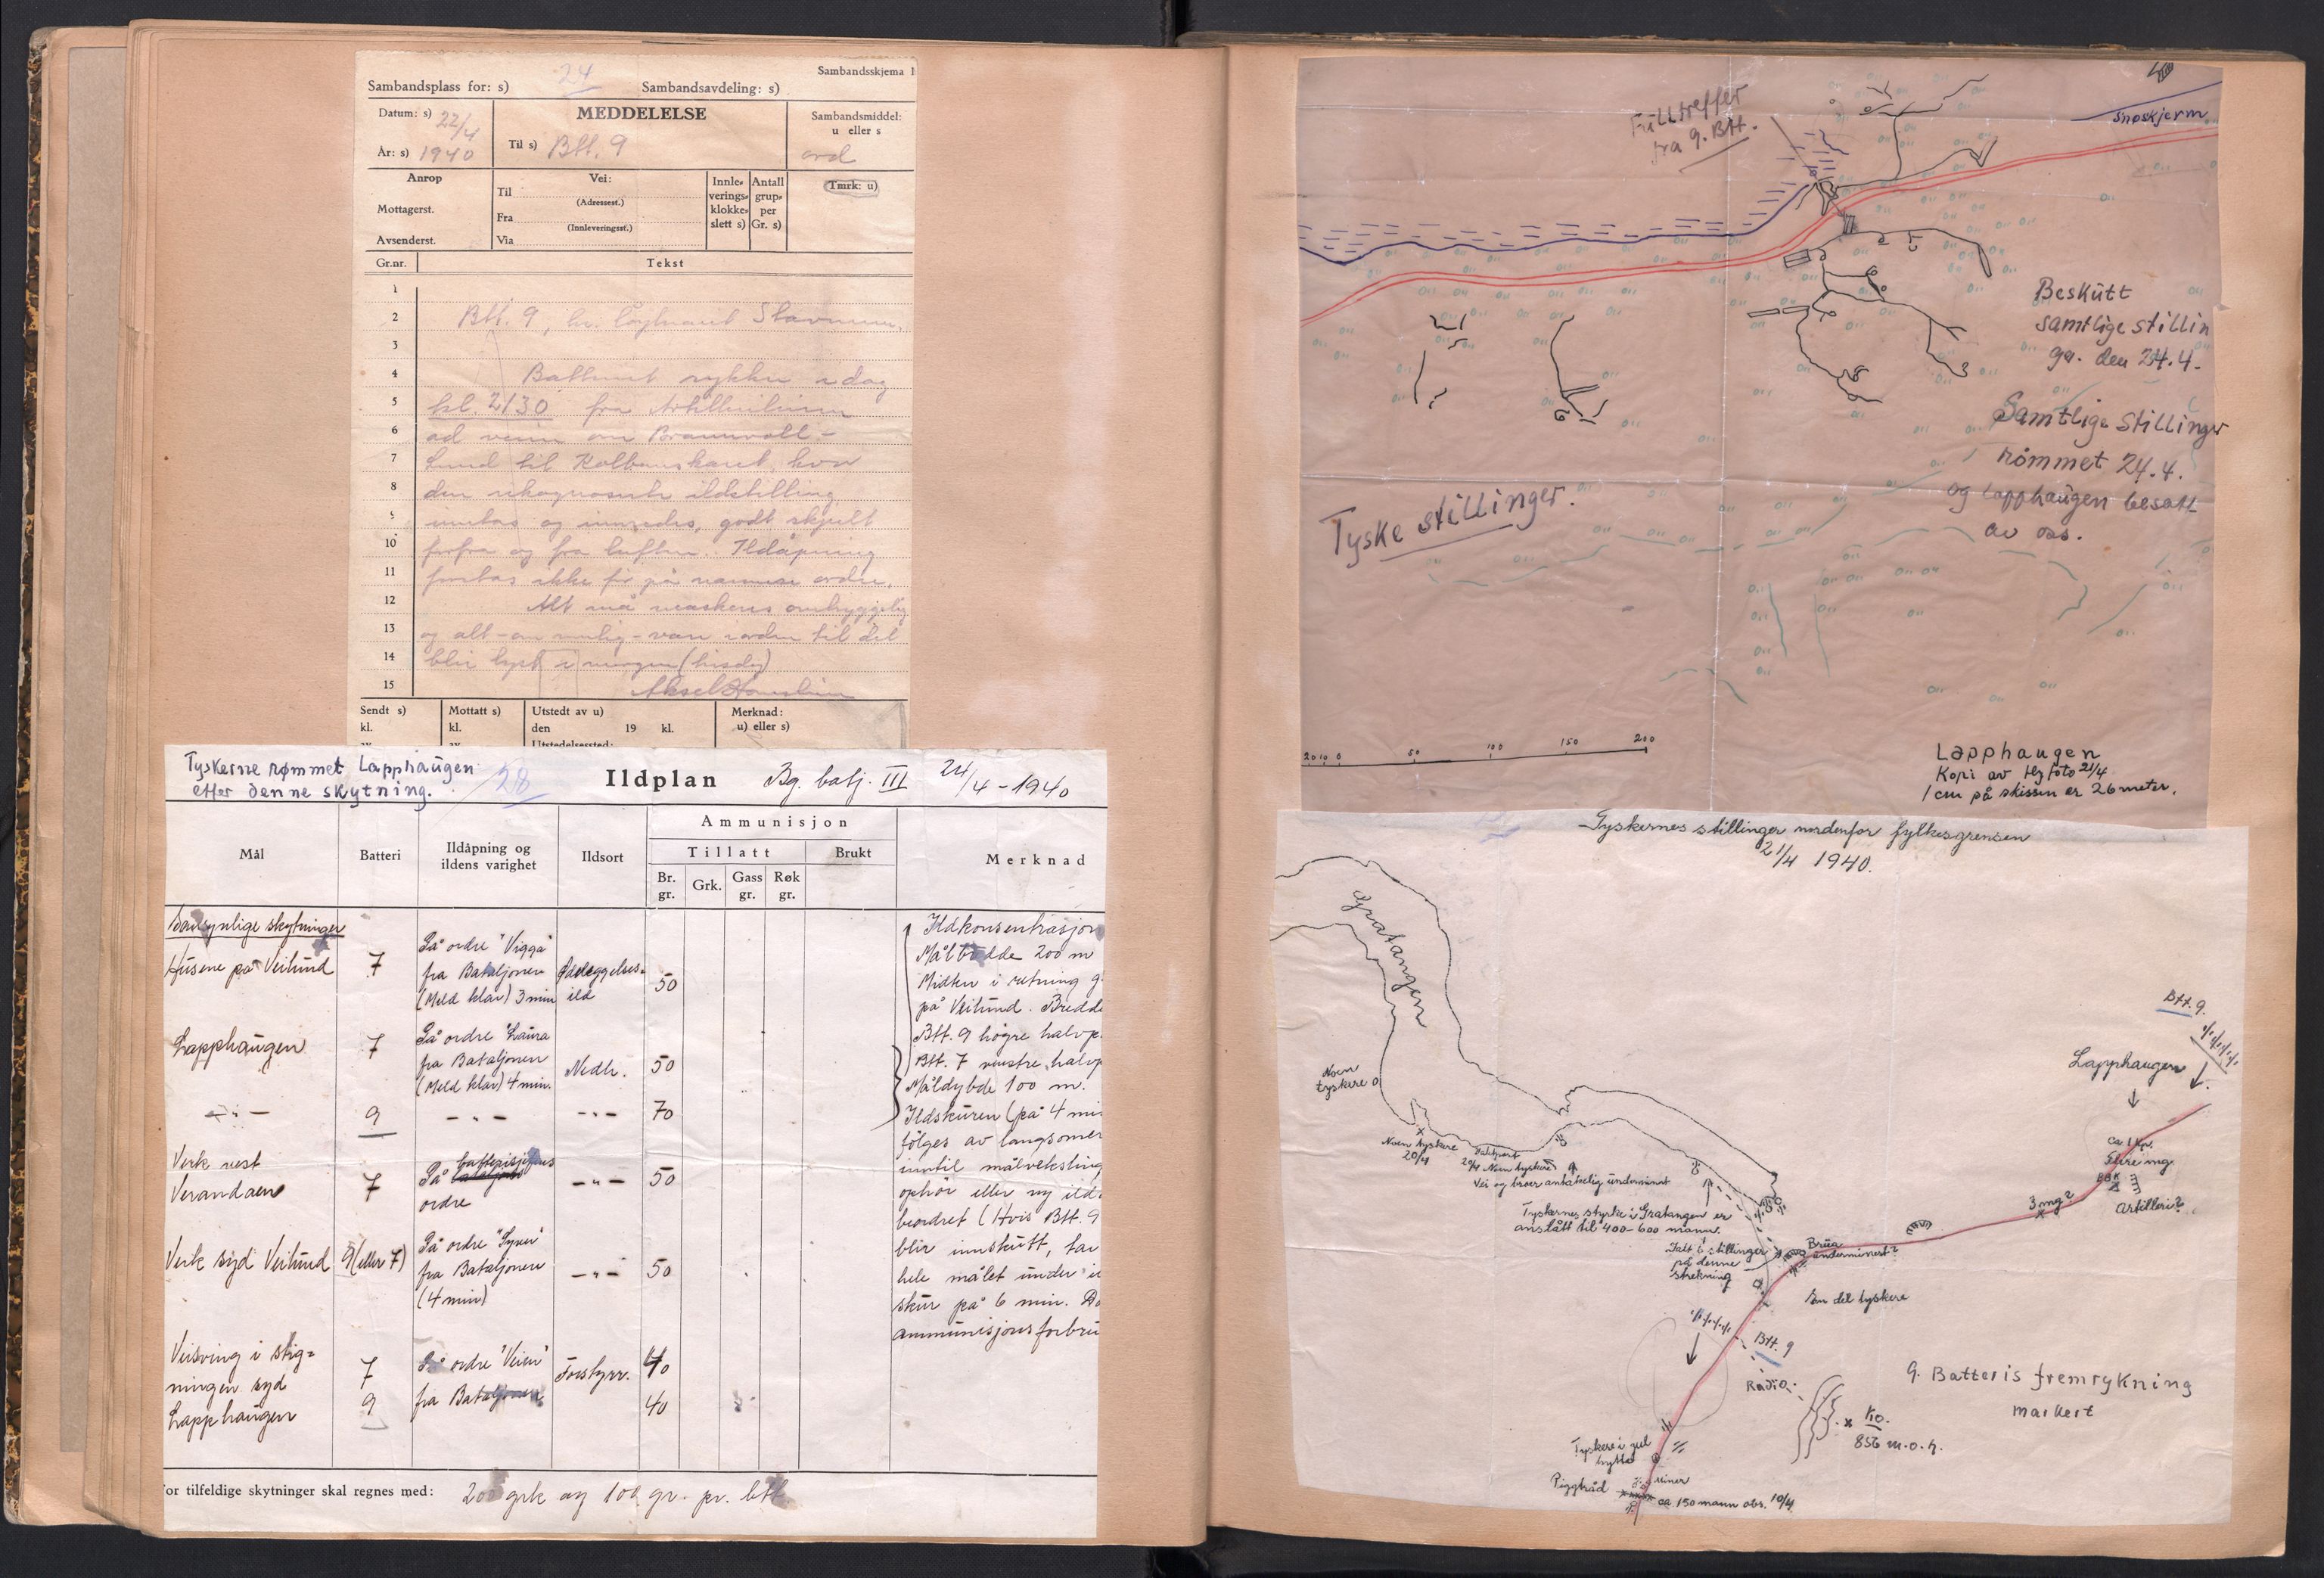 Sambandsskjema 1
Sambandsplass for: s) 24 Sambandsavdeling: s)
Datum: s) 22/4
År: s) 1940
MEDDELELSE
Til s) Btt. 9
Sambandsmiddel:
u eller s
ord
Anrop
Mottagerst.
Avsenderst.
Vei:
Til
(Adressest.)
Fra
(Innleveringsst.)
Via
Innle-
verings-
klokke-
slett s)
Antall
grup-
per
Gr. s)
Tmrk: u)
Gr.nr. Tekst
1
2 Btt. 9, hr. løytnant
3
4 Batteriet rykker idag
5 kl. 2130 fra
6 ad veien om Brannvoll -
7 Lund til Kolbanskaret, hvor
8 den rekognoserte ildstilling
9 inntas og innredes, godt skjult
10 forfra og fra luften. Ildåpning
11 foretas ikke før på nærmere ordre.
12 Alt må maskeres omhyggelig
13 og alt - om mulig - være i orden til det
14 blir lyst i morgen (tirsdag)
15
Sendt s)
kl.
Mottatt s)
kl.
Utstedt av u)
den 19 kl.
Utstedelsessted:
Merknad:
u) eller s)
Tyskerne rømmet Lapphaugen
etter denne skytning.
28
Ildplan Bg. batj. III 24/4 - 1940
Mål
Batteri
Ildåpning og
ildens varighet
Ildsort
Ammunisjon
Tillatt
Brukt
Br.
gr.
Grk.
Gass
gr.
Røk
gr.
Merknad
Sansynlige skytninger
Husene på Veilund
7
På ordre "Vigga"
fra Bataljonen
(Meld klar) 3 min
Ødeleggelses-
ild
50
Lapphaugen
7
På ordre "Laura
fra Bataljonen
(Meld klar) 4 min.
Nedh.
50
- " -
9
- " -
- " -
70
Verk vest
Verandaen
7
På
ordre
- " -
50
Verk syd Veilund
9 (eller 7)
På ordre
fra Bataljonen
(4 min)
- " -
50
Veisving i stig-
ningen syd
Lapphaugen
7
9
På ordre "Veien"
fra Bataljonen
Forstyrr.
40
40
Ildkonsentrasjon
Målbredde 200 m
Midten i retning g
på Veilund. Bredde
Btt. 9 høgre halvp
Btt. 7 venstre halvp
Måldybde 100 m.
Ildskuren (på 4 min
følges av langsomer
inntil målveksling
ophør eller ny ild
beordret (Hvis Btt. 9
blir innskutt, tar
hele målet under i
skur på 6 min. Do
ammunisjonsforbru
or tilfeldige skytninger skal regnes med: 200 grk og 100 gr. pr. btt
Fulltreffer
fra 9. Btt.
Snøskjerm
Beskutt
samtlige stillin
ger den 24.4.
Samtlige stillinger
rømmet 24.4.
og Lapphaugen besatt
av oss.
Tyske stillinger.
20 10 0 50 100 150 200
Lapphaugen
Kopi av flyfoto 21/4
1 cm på skissen er 26 meter.
Tyskernes stillinger nordenfor fylkesgrensen
21/4 1940.
Gratangen
Noen
tyskere
Noen tyskere
20/4
20/4 Noen tyskere
Vei og broer antakelig underminert
Tyskernes styrke i Gratangen er
anslått til 400-600 mann.
Tatt i stillinger
på denne
strekning
Brua
underminert?
En del tyskere
Btt. 9.
Lapphaugen
ca 1 kp.
Flere mg.
Artilleri?
3 mg?
Btt. 9
Radio
Ko.
856 m.o.h.
9. Batteris fremrykning
markert
Tyskere i gul
hytte
Miner
Piggtråd
ca 150 mann obs. 10/4